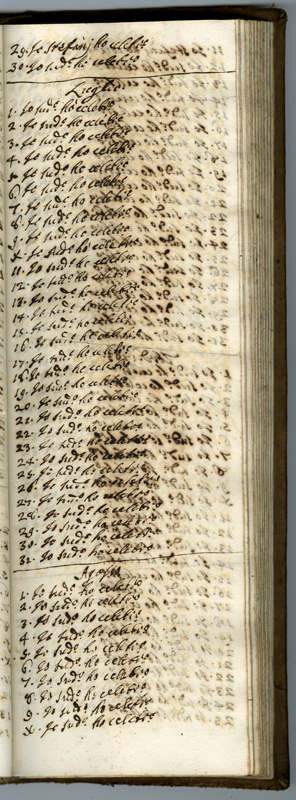 29. Io Stefanij ho celebrᵗᵒ
30. Io sudᵒ ho celebrᵗᵒ
Luglio
1. Io sudᵒ ho celebrᵗᵒ
2. Io sudᵒ ho celebrᵗᵒ
3. Io sudᵒ ho celebrᵗᵒ
4. Io sudᵒ ho celebrᵗᵒ
5. Io sudᵒ ho celebrᵗᵒ
6. Io sudᵒ ho celebrᵗᵒ
7. Io sudᵒ ho celebrᵗᵒ
8. Io sudᵒ ho celebrᵗᵒ
9. Io sudᵒ ho celebrᵗᵒ
X. Io sudᵒ ho celebrᵗᵒ
11. Io sudᵒ ho celebrᵗᵒ
12. Io sudᵒ ho celebrᵗᵒ
13. Io sudᵒ ho celebrᵗᵒ
14. Io sudᵒ ho celebrᵗᵒ
15. Io sudᵒ ho celebrᵗᵒ
16. Io sudᵒ ho celebrᵗᵒ
17. Io sudᵒ ho celebrᵗᵒ
18. Io sudᵒ ho celebrᵗᵒ
19. Io sudᵒ ho celebrᵗᵒ
20. Io sudᵒ ho celebrᵗᵒ
21. Io sudᵒ ho celebrᵗᵒ
22. Io sudᵒ ho celebrᵗᵒ
23. Io sudᵒ ho celebrᵗᵒ
24. Io sudᵒ ho celebrᵗᵒ
25. Io sudᵒ ho celebrᵗᵒ
26. Io sudᵒ ho celebrᵗᵒ
27. Io sudᵒ ho celebrᵗᵒ
28. Io sudᵒ ho celebrᵗᵒ
29. Io sudᵒ ho celebrᵗᵒ
30. Io sudᵒ ho celebrᵗᵒ
31. Io sudᵒ ho celebrᵗᵒ
Agosto
1. Io sudᵒ ho celebrᵗᵒ
2. Io sudᵒ ho celebrᵗᵒ
3. Io sudᵒ ho celebrᵗᵒ
4. Io sudᵒ ho celebrᵗᵒ
5. Io sudᵒ ho celebrᵗᵒ
6. Io sudᵒ ho celebrᵗᵒ
7. Io sudᵒ ho celebrᵗᵒ
8. Io sudᵒ ho celebrᵗᵒ
9. Io sudᵒ ho celebrᵗᵒ
X. Io sudᵒ ho celebrᵗᵒ